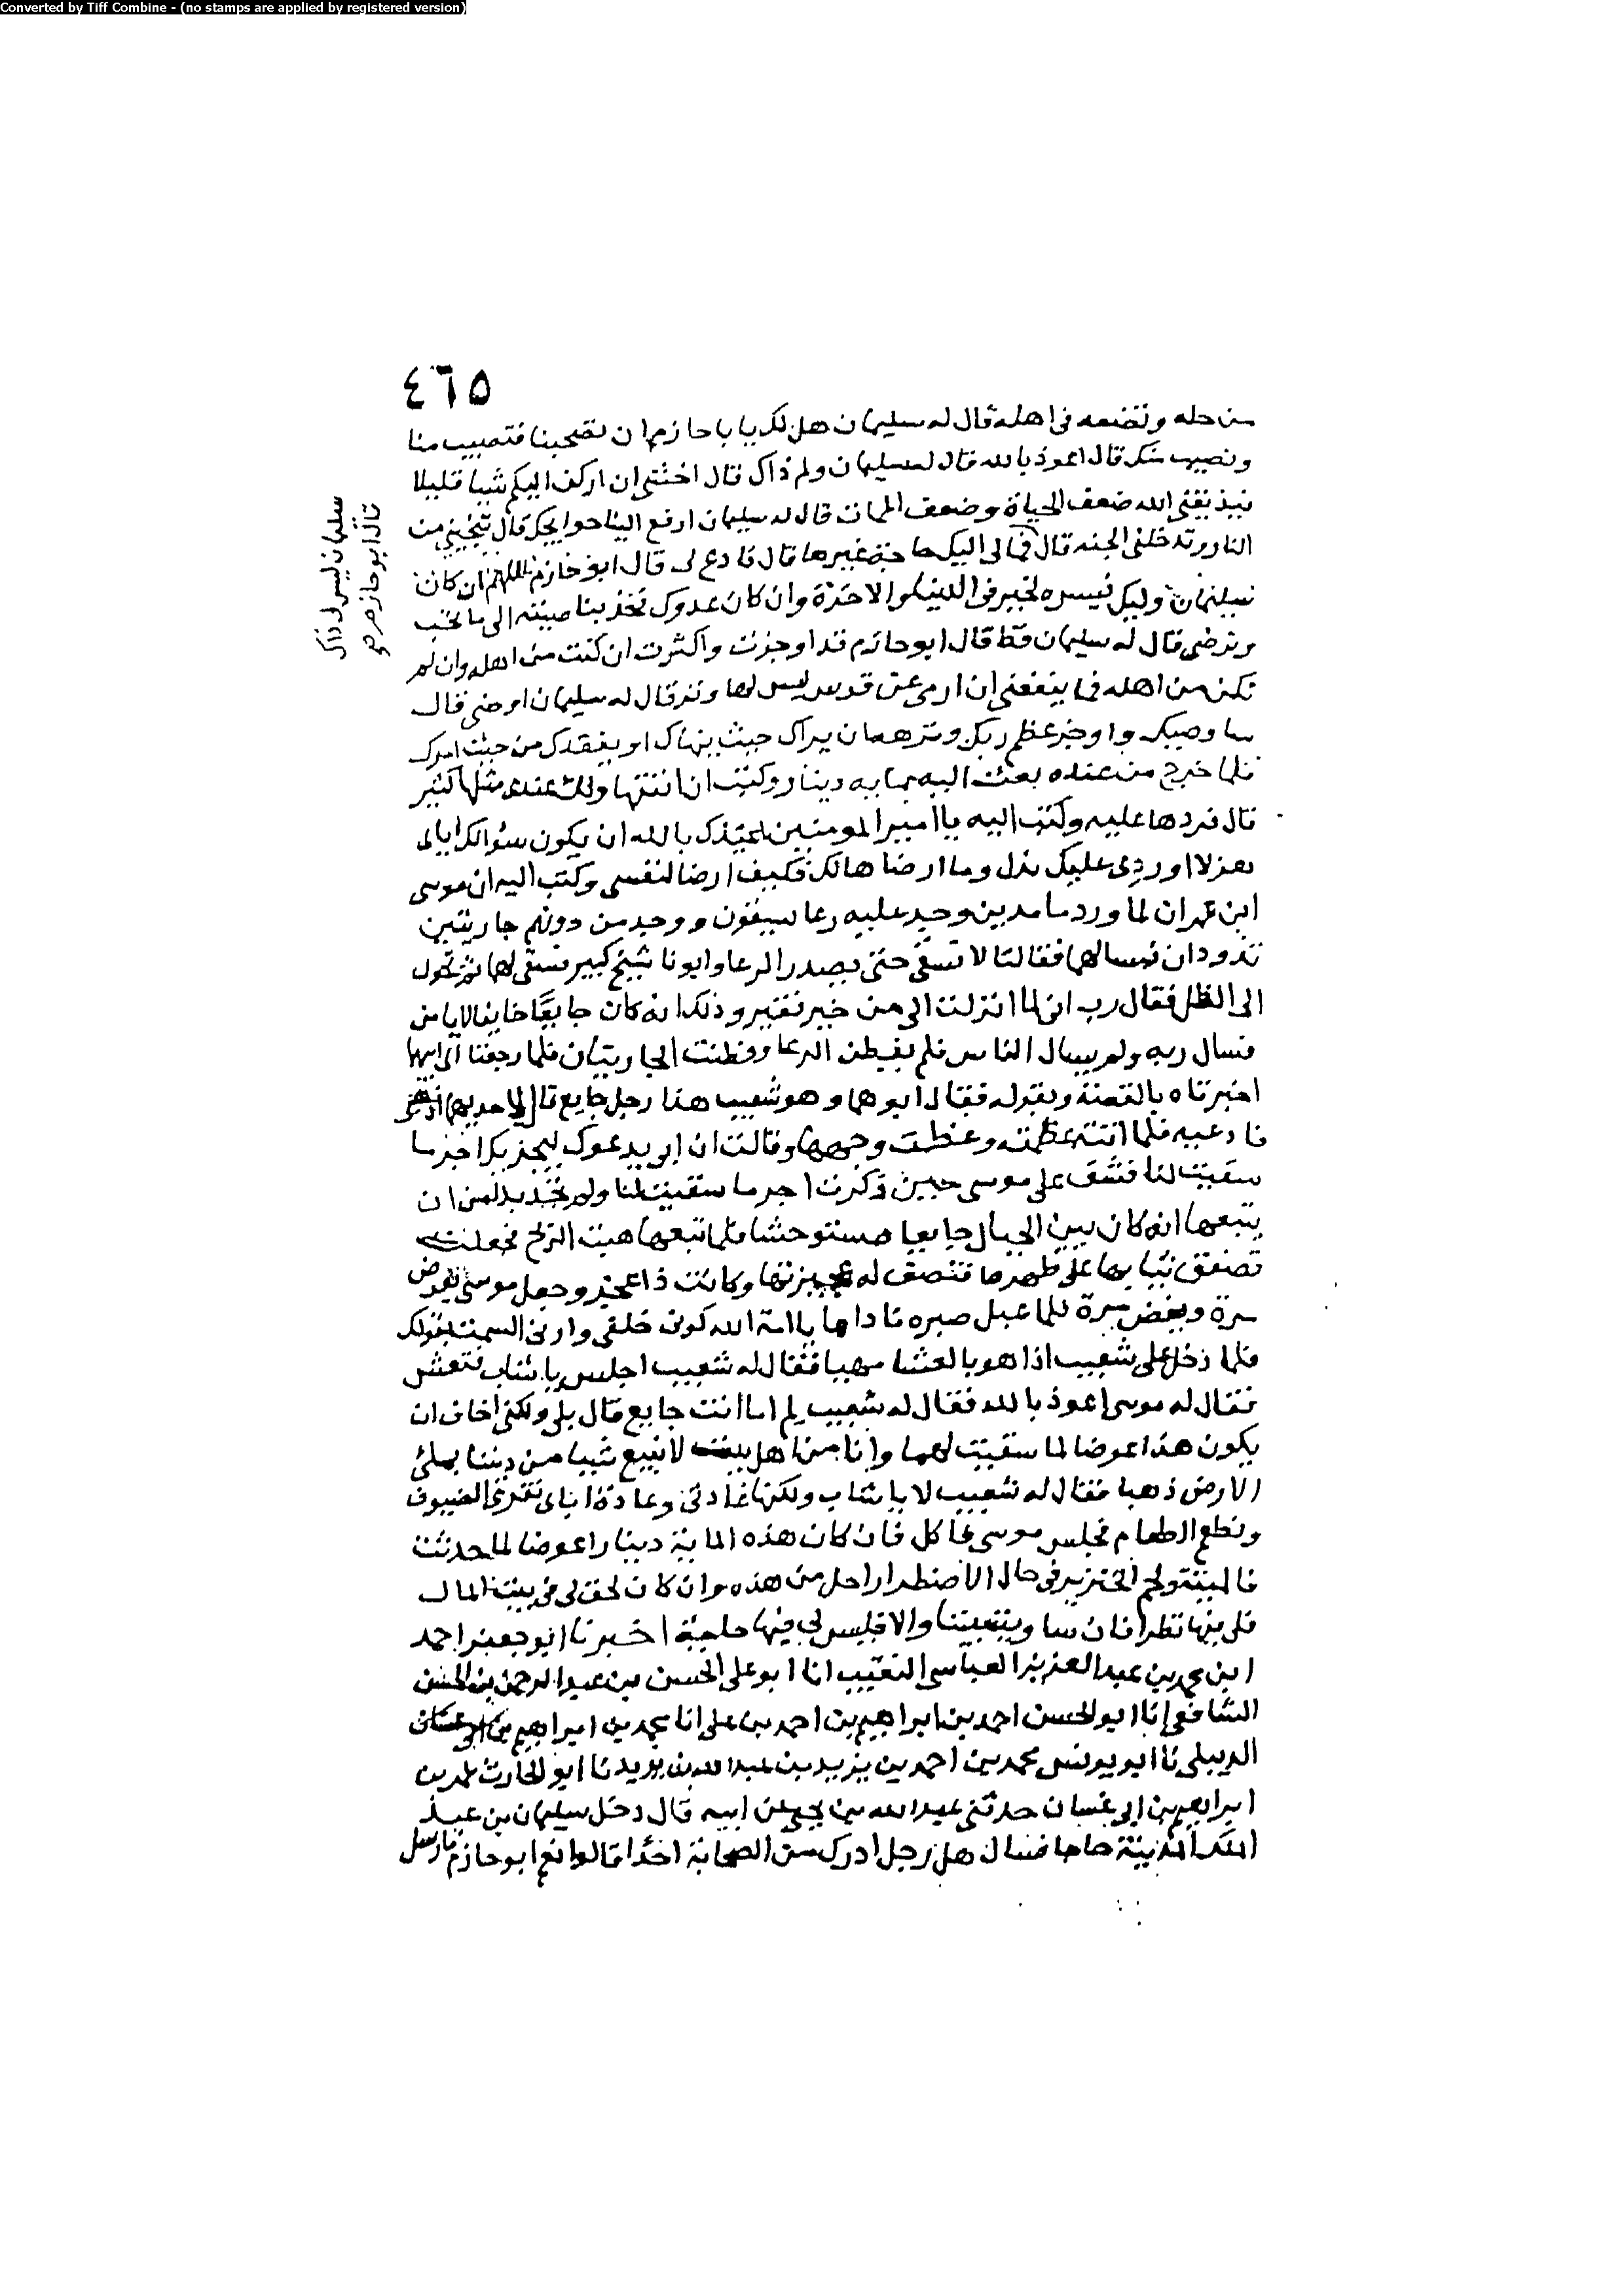 Converted by Tiff Combine - (no stamps are applied by registered version)
٤٦٥
من حله وتضعه في اهله قال له سليمان هل لك يا با حازم ان تصحبنا فتصيب منا
ونصيب منك قال اعوذ بالله قال له سليمان ولم ذاك قال اخشى ان اركن اليكم شيا قليلا
فيذيقني الله ضعف الحياة وضعف الممات قال له سليمان ارفع الينا حوايجك قال تنجيني من
النار وتدخلني الجنه قال فمالى اليك حاجة غيرها قال فادع لى قال ابو حازم اللهم ان كان
سليمان وليك فيسره لخير في الدنيا والاخرة وان كان عدوك فخذ بناصيته الى ما تحب
وترضى قال له سليمان قط قال ابو حازم قد اوجزت واكثرت ان كنت من اهله وان لم
تكن من اهله فما ينفعني ان ارمى عن قوس ليس لها وتر قال له سليمان اوصني قال
ساوصيك واوجز عظم ربك ونزهه ان يراك حيث ينهاك او يفقدك من حيث امرك
فلما خرج من عنده بعث اليه بمايه دينار وكتب ان انفقها ولك عندى مثلها كثير
قال فردها عليه وكتب اليه يا امير المومنين اعيذك بالله ان يكون سؤالك اياى
هزلا او ردى عليك بذل وما ارضاها لك فكيف ارضا لنفسي وكتب اليه ان موسى
ابن عمران لما ورد ما مدين وجد عليه رعا يسقون ووجد من دونهم جاريتين
تذودان فسالهما فقالتا لا نسقي حتى يصدر الرعا وابونا شيخ كبير فسقى لهما ثم تولى
الى الظل فقال رب انى لما انزلت الى من خير فقير وذلك انه كان جايعا خايفا لا يامن
فسال ربه ولم يسال الناس فلم يفطن الرعا وفطنت الجاريتان فلما رجعتا الى ابيهما
اخبرتاه بالقصة وبقوله فقال ابوهما وهو شعيب هذا رجل جايع قال لاحديهما اذهبي
فادعيه فلما اتته عظمته وغطت وجهها وقالت ان ابى يدعوك ليجزيك اجر ما
سقيت لنا فشق على موسى حين ذكرت اجر ما سقيت لنا ولم يجد بدا من ان
يتبعها انه كان بين الجبال جايعا مستوحشا فلما تبعها هبت الريح فجعلت
تصفق ثيابها على ظهرها فتصف له عجيزتها وكانت ذا عجز وجعل موسى يعرض
مرة ويغض مرة فلما عيل صبره ناداها يا امة الله كونى خلفي وارنى السمت بقولك
فلما دخل على شعيب اذا هو بالعشا مهيا فقال له شعيب اجلس يا شاب فتعش
فقال له موسى اعوذ بالله فقال له شعيب لم اما انت جايع قال بلى ولكنى اخاف ان
يكون هذا عوضا لما سقيت لهما وانا من اهل بيت لا نبيع شيا من ديننا بملئ
الارض ذهبا فقال له شعيب لا يا شاب ولكنها عادتي وعادة اباى نقرى الضيوف
ونطعم الطعام فجلس موسى فاكل فان كان هذه الماية دينار عوضا لما حدثت
فالميتة ولحم الخنزير في حال الاضطرار احل من هذه وان كان لحق لى في بيت المال
فلى فيها نظرا فان ساويت بيننا والا فليس لي فيها حاجة اخبرنا ابو جعفر احمد
ابن محمد بن عبد العزيز العباسى النقيب انا ابو على الحسن بن عبد الرحمن بن الحسن
الشافعي انا ابو الحسن احمد بن ابراهيم بن احمد بن على انا محمد بن ابراهيم بن
الديبلى نا ابو يونس محمد بن احمد بن يزيد بن عبد الله بن يزيد نا ابو الحارث محمد بن
ابراهيم بن ابى غسان حدثنى عبد الله بن يحيى عن ابيه قال دخل سليمان بن عبد
الملك المدينة حاجا فسال هل رجل ادرك من الصحابة احدا قالوا نعم ابو حازم فارسل
سليمان ليس لى ذاك
قال ابو حازم هو